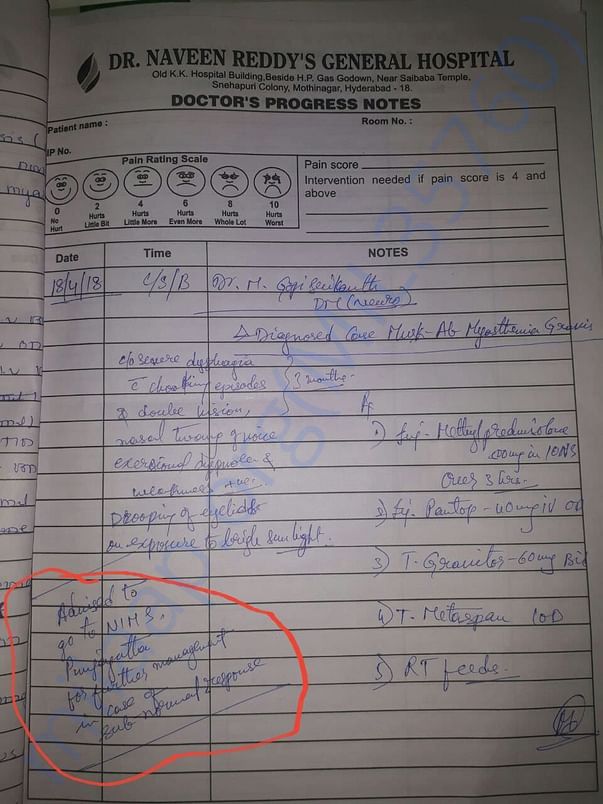 DR. NAVEEN REDDY'S GENERAL HOSPITAL
Old K.K. Hospital Building, Beside H.P. Gas Godown, Near Saibaba Temple,
Snehapuri Colony, Mothinagar, Hyderabad - 18.
DOCTOR'S PROGRESS NOTES
Patient name :
Room No. :
IP No.
Pain Rating Scale
0 2 4 6 8 10
No Hurt
Hurts Little Bit
Hurts Little More
Hurts Even More
Hurts Whole Lot
Hurts Worst
Pain score
Intervention needed if pain score is 4 and
above
Date Time NOTES
18/4/18 C/S/B Dr. M.
DM (Neuro)
Diagnosed Case Musk-Ab Myasthenia Gravis
c/o severe dysphagia
c choking episodes
& double vision,
3 months.
nasal twang of voice
exertional &
weakness +ve.
Drooping of eyelids
on exposure to bright sunlight.
1) Inj. Methylprednisolone
in NS
Over 3 hrs.
2) Inj. Pantop - 40mg IV OD
3) T. - 60mg Bid
4) T. OD
5) RT feeds.
Advised to
go to NIMS,
Punjagutta
for further management
in case of
sub normal response